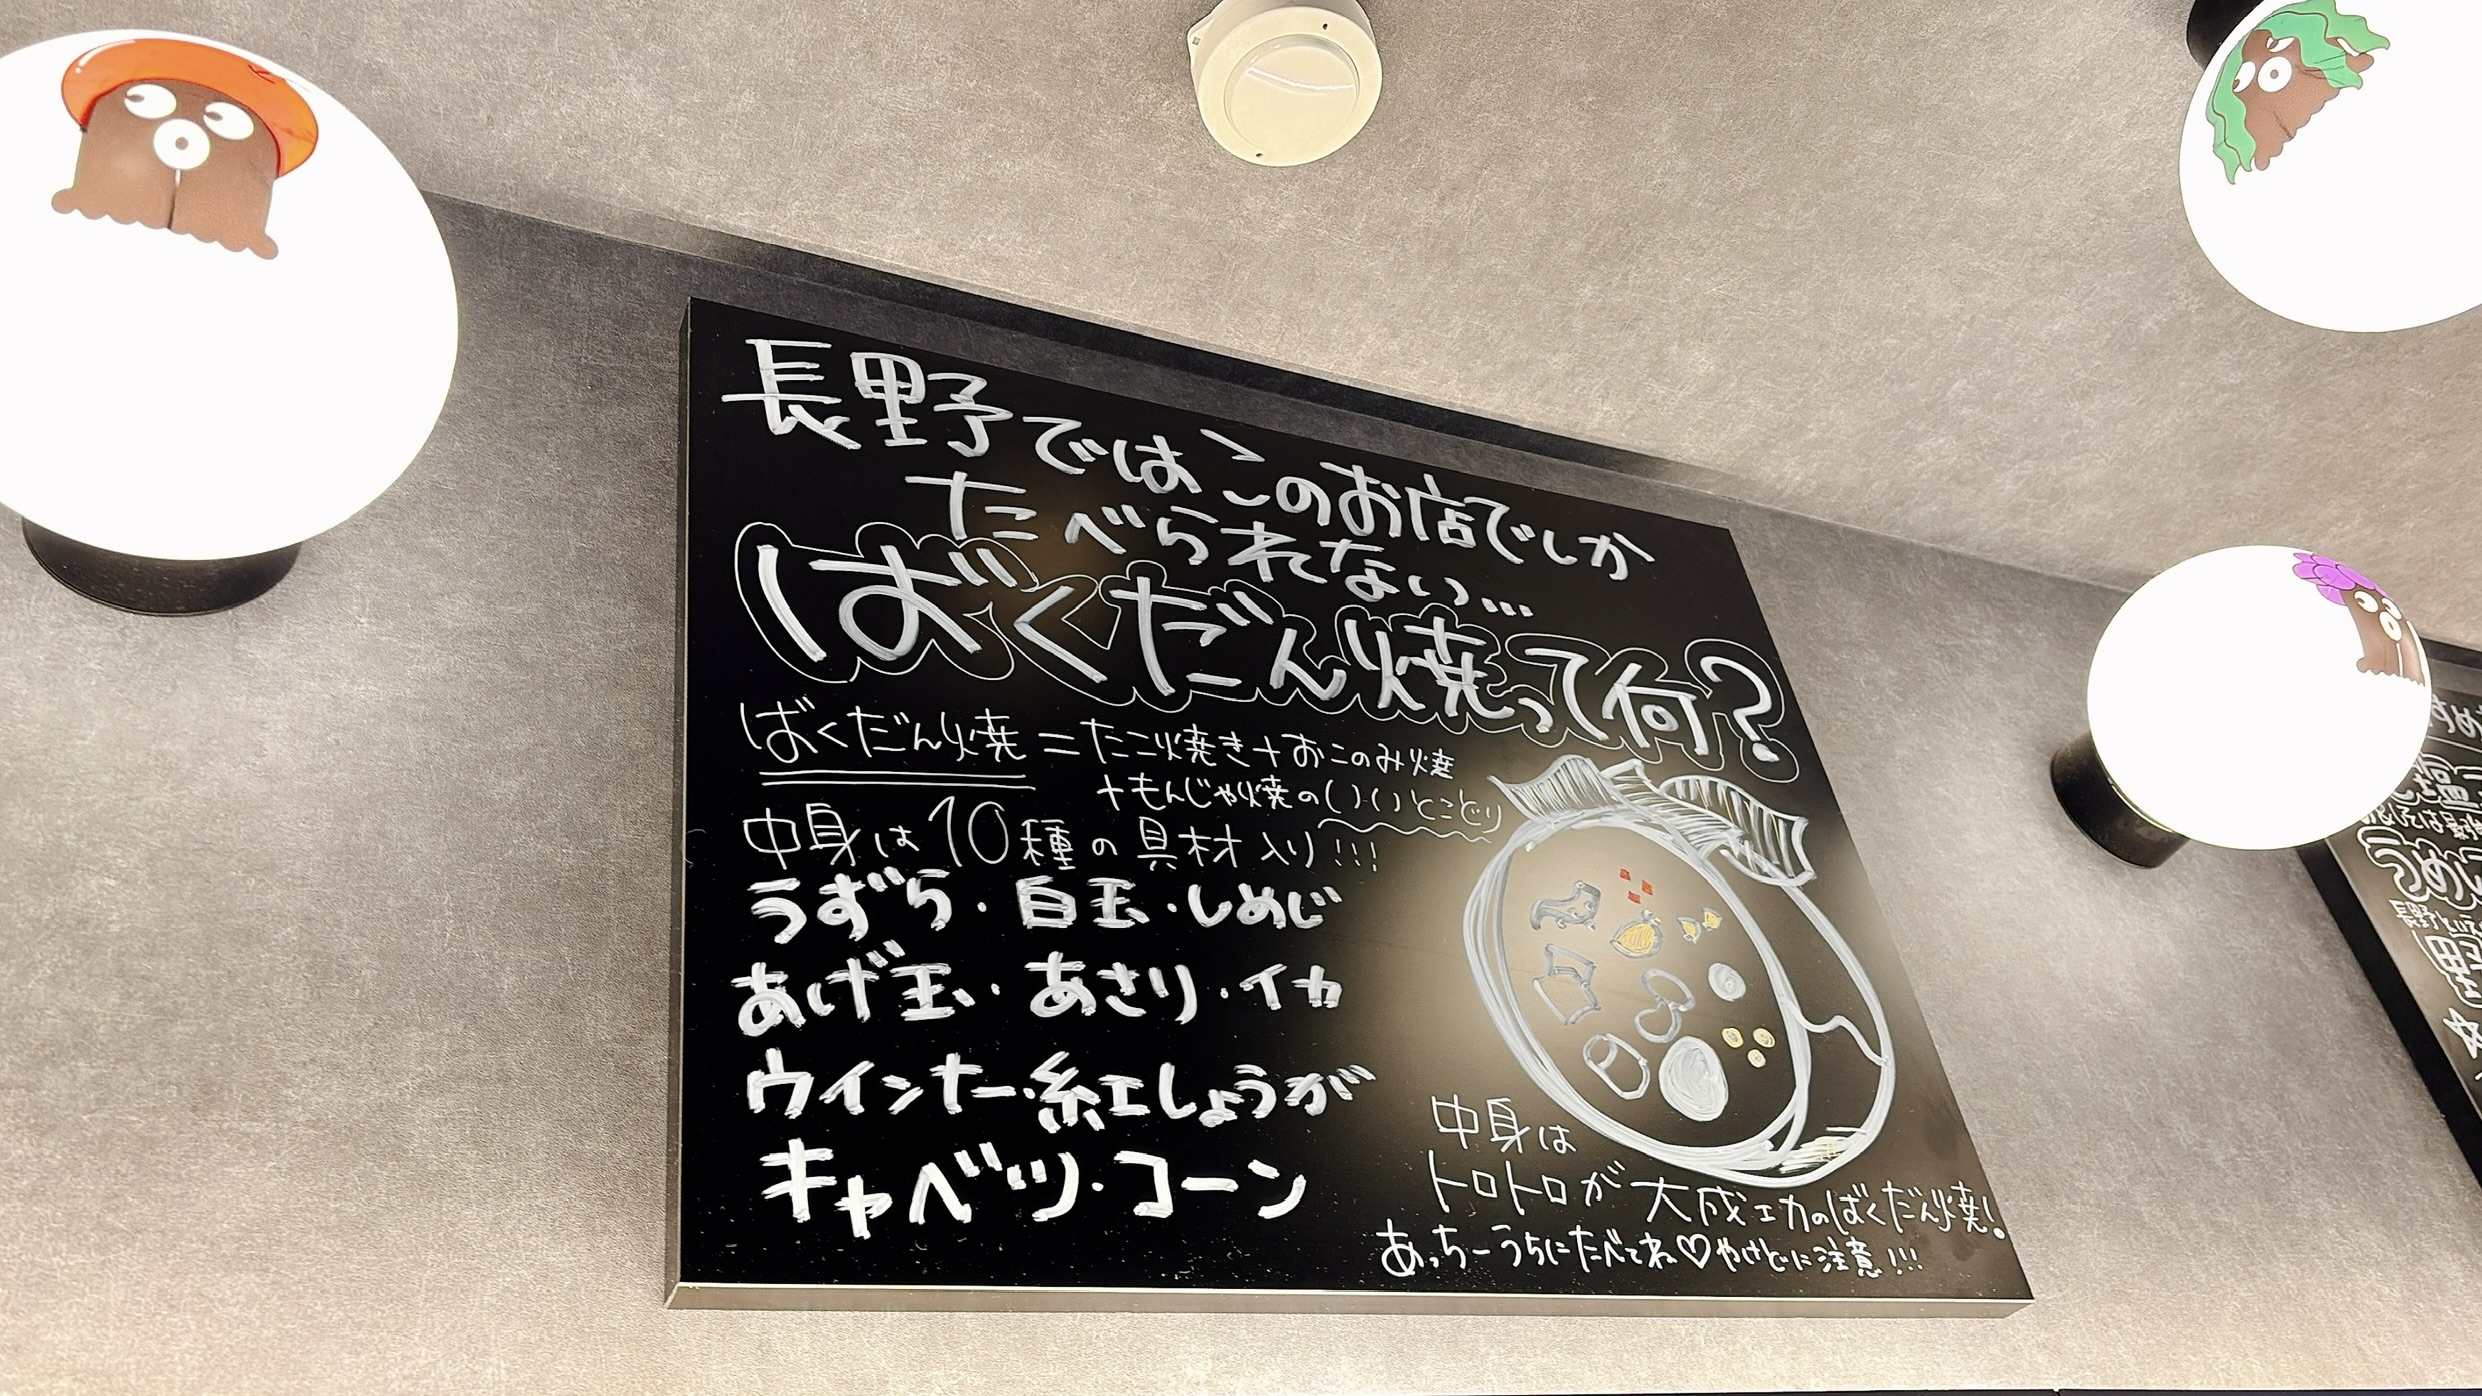 長野ではこのお店でしか
たべられない…
ばくだん焼って何?
ばくだん焼=たこ焼き+おこのみ焼
+もんじゃ焼のいいとこどり
中身は10種の具材入り!!!
うずら・白玉・しめじ
あげ玉・あさり・イカ
ウインナー・紅しょうが
キャベツ・コーン
中身は
トロトロが大成功のばくだん焼!
あっちーうちにたべてね♡やけどに注意!!!